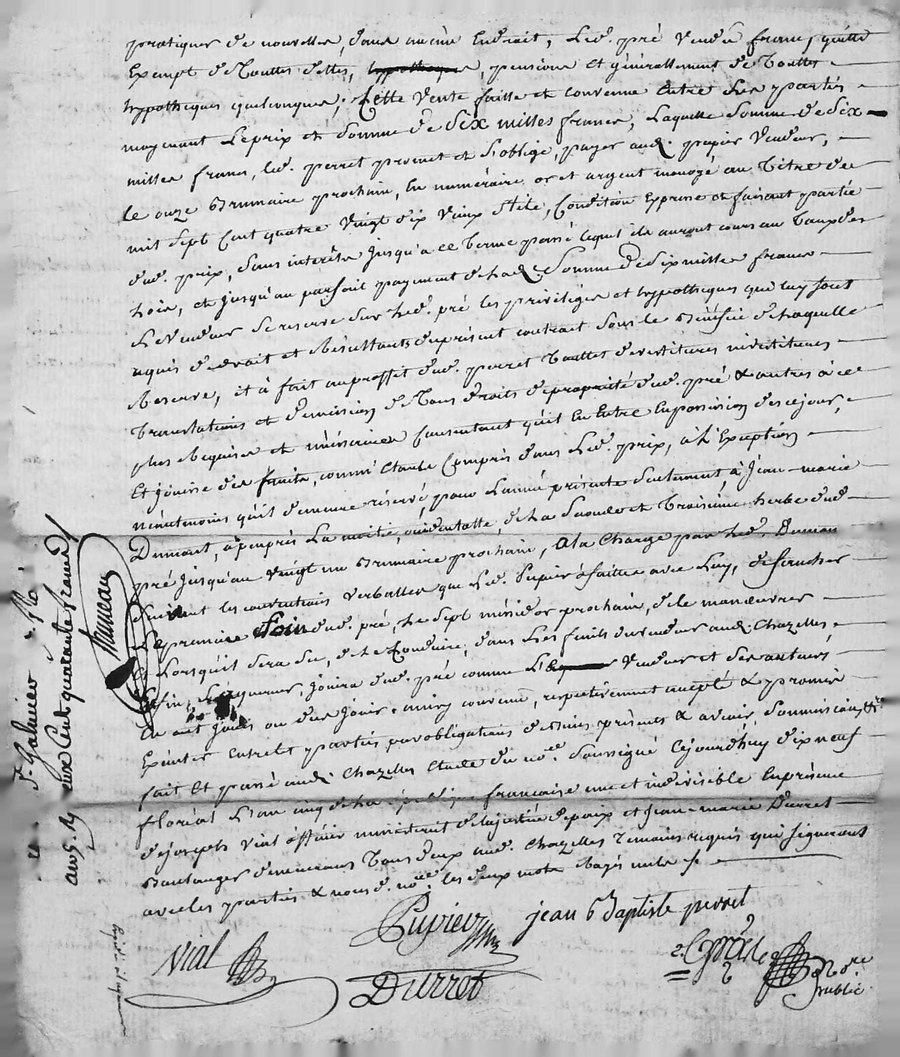 pratiquer de nouvelles, dans aucun Endroit, Led. pré vendu franc, quitte
Exempt de Touttes dettes, hypotheques, pensions Et générallement de Touttes
hypotheques quelconques; Cette vente faitte et convenue Entre Les parties
moyenant Le prix et Somme de Six milles francs, Laquelle Somme de Six
milles francs, led. perret promet et S'oblige, payer aud. pupier vendeur,
le onze Brumaire prochain, En numéraire or et argent monoyé au Titre de
mil Sept Cent quatre vingt dix vieux Stile, Condition Expresse et faisant partie
dud. prix, Sans intérêts jusqu'a ce terme passé lequel ils auront cours au Taux des
Loix, et jusqu'au parfait payement de lad. Somme de Six milles francs
Le vendeur Se reserve Sur Led. pré les privilèges et hypotheques que luy Sont
aquis de droit et Résultants du présent contrait Sous le Bénéfice de laquelle
Reserve, il à fait au proffet dud. perret Touttes devestitures investitures
Translations et démission de Tous droits de propriété dud. pré & autres à ce
plus Requises et nécéssaires Consentant qu'il En Entre En possession dès ce jour,
Et jouisse des fruits, comme Etants Compris dans Led. prix, à l'Exception
néantmoins qu'il demeure réservé, pour L'année présente Seulement, à Jean-marie
Dumont, à peuprès La moitié, de La Seconde et Troisième herbe dud.
pré jusqu'au vingt un Brumaire prochain, à la Charge par led. Dumont
Suivant les conventions verballes que Led. Pupier à faittes avec Luy, de faucher
Le premier foin dud. pré, le Sept méssidor prochain, de le manœuvrer
Et Lorsqu'il Sera Sec, de le Conduire, dans Les fenils du vendeur aud. Chazelles,
Enfin, L'acquereur jouira dud. pré comme Le vendeur et Ses auteurs
En ont jouis ou dus jouir. ainsy convenu, respectivement accepté & promis
Exécuter Entre les parties par obligations de biens présents & avenir, Soumissions &c.
fait Et passé aud. Chazelles Etude du no.re Soussigné Cejourdhuy dix neuf
floréal L'an cinq de La république française une et indivisible En présence
de joseph Vial officier ministeriel de la justice de paix et Jean-marie Durret
Boulanger demeurants Tous deux aud. Chazelles Témoins requis qui Signeront
avec les parties & nous d. no.re les deux mots Rayés nuls
Pupier jean Baptiste perret
Vial Durret
no.re
public